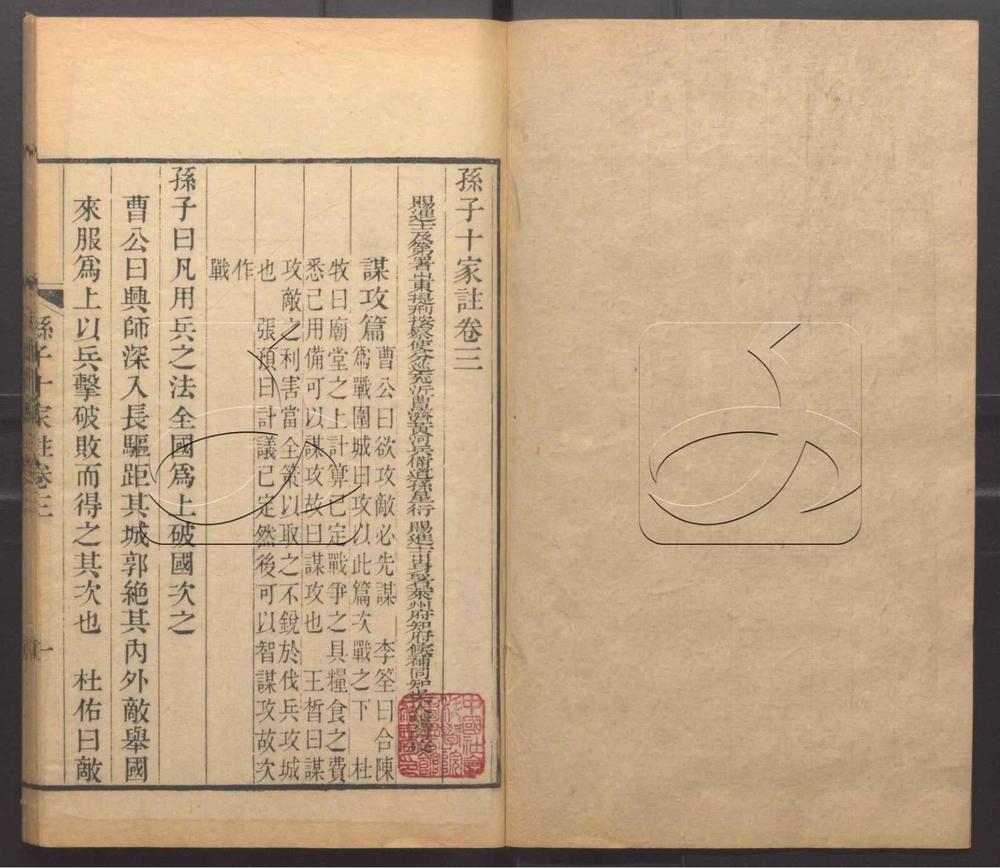 孫子十家註卷三
賜進士及第署山東提刑按察使分巡兗沂曹濟黃河兵備道孫星衍 賜進士出身署萊州府知府候補同知吳人驥同校
謀攻篇
曹公曰欲攻敵必先謀 李筌曰合陳
爲戰圍城曰攻以此篇次戰之下 杜
牧曰廟堂之上計算已定戰爭之具糧食之費
悉已用備可以謀攻故曰謀攻也 王晳曰謀
攻敵之利害當全策以取之不銳於伐兵攻城
也 張預曰計議已定然後可以智謀攻故次
作
戰
孫子曰凡用兵之法全國爲上破國次之
曹公曰興師深入長驅距其城郭絕其內外敵舉國
來服爲上以兵擊破敗而得之其次也 杜佑曰敵
孫子十家註卷三
一